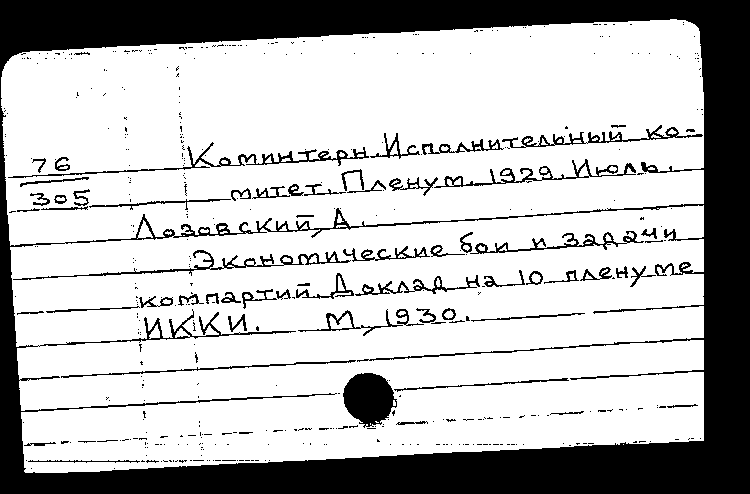 76
305
Коминтерн. Исполнительный ко-
митет. Пленум. 1929. Июль.
Лозовский, А.
Экономические бои и задачи
компартий. Доклад на 10 пленуме
ИККИ. М., 1930.